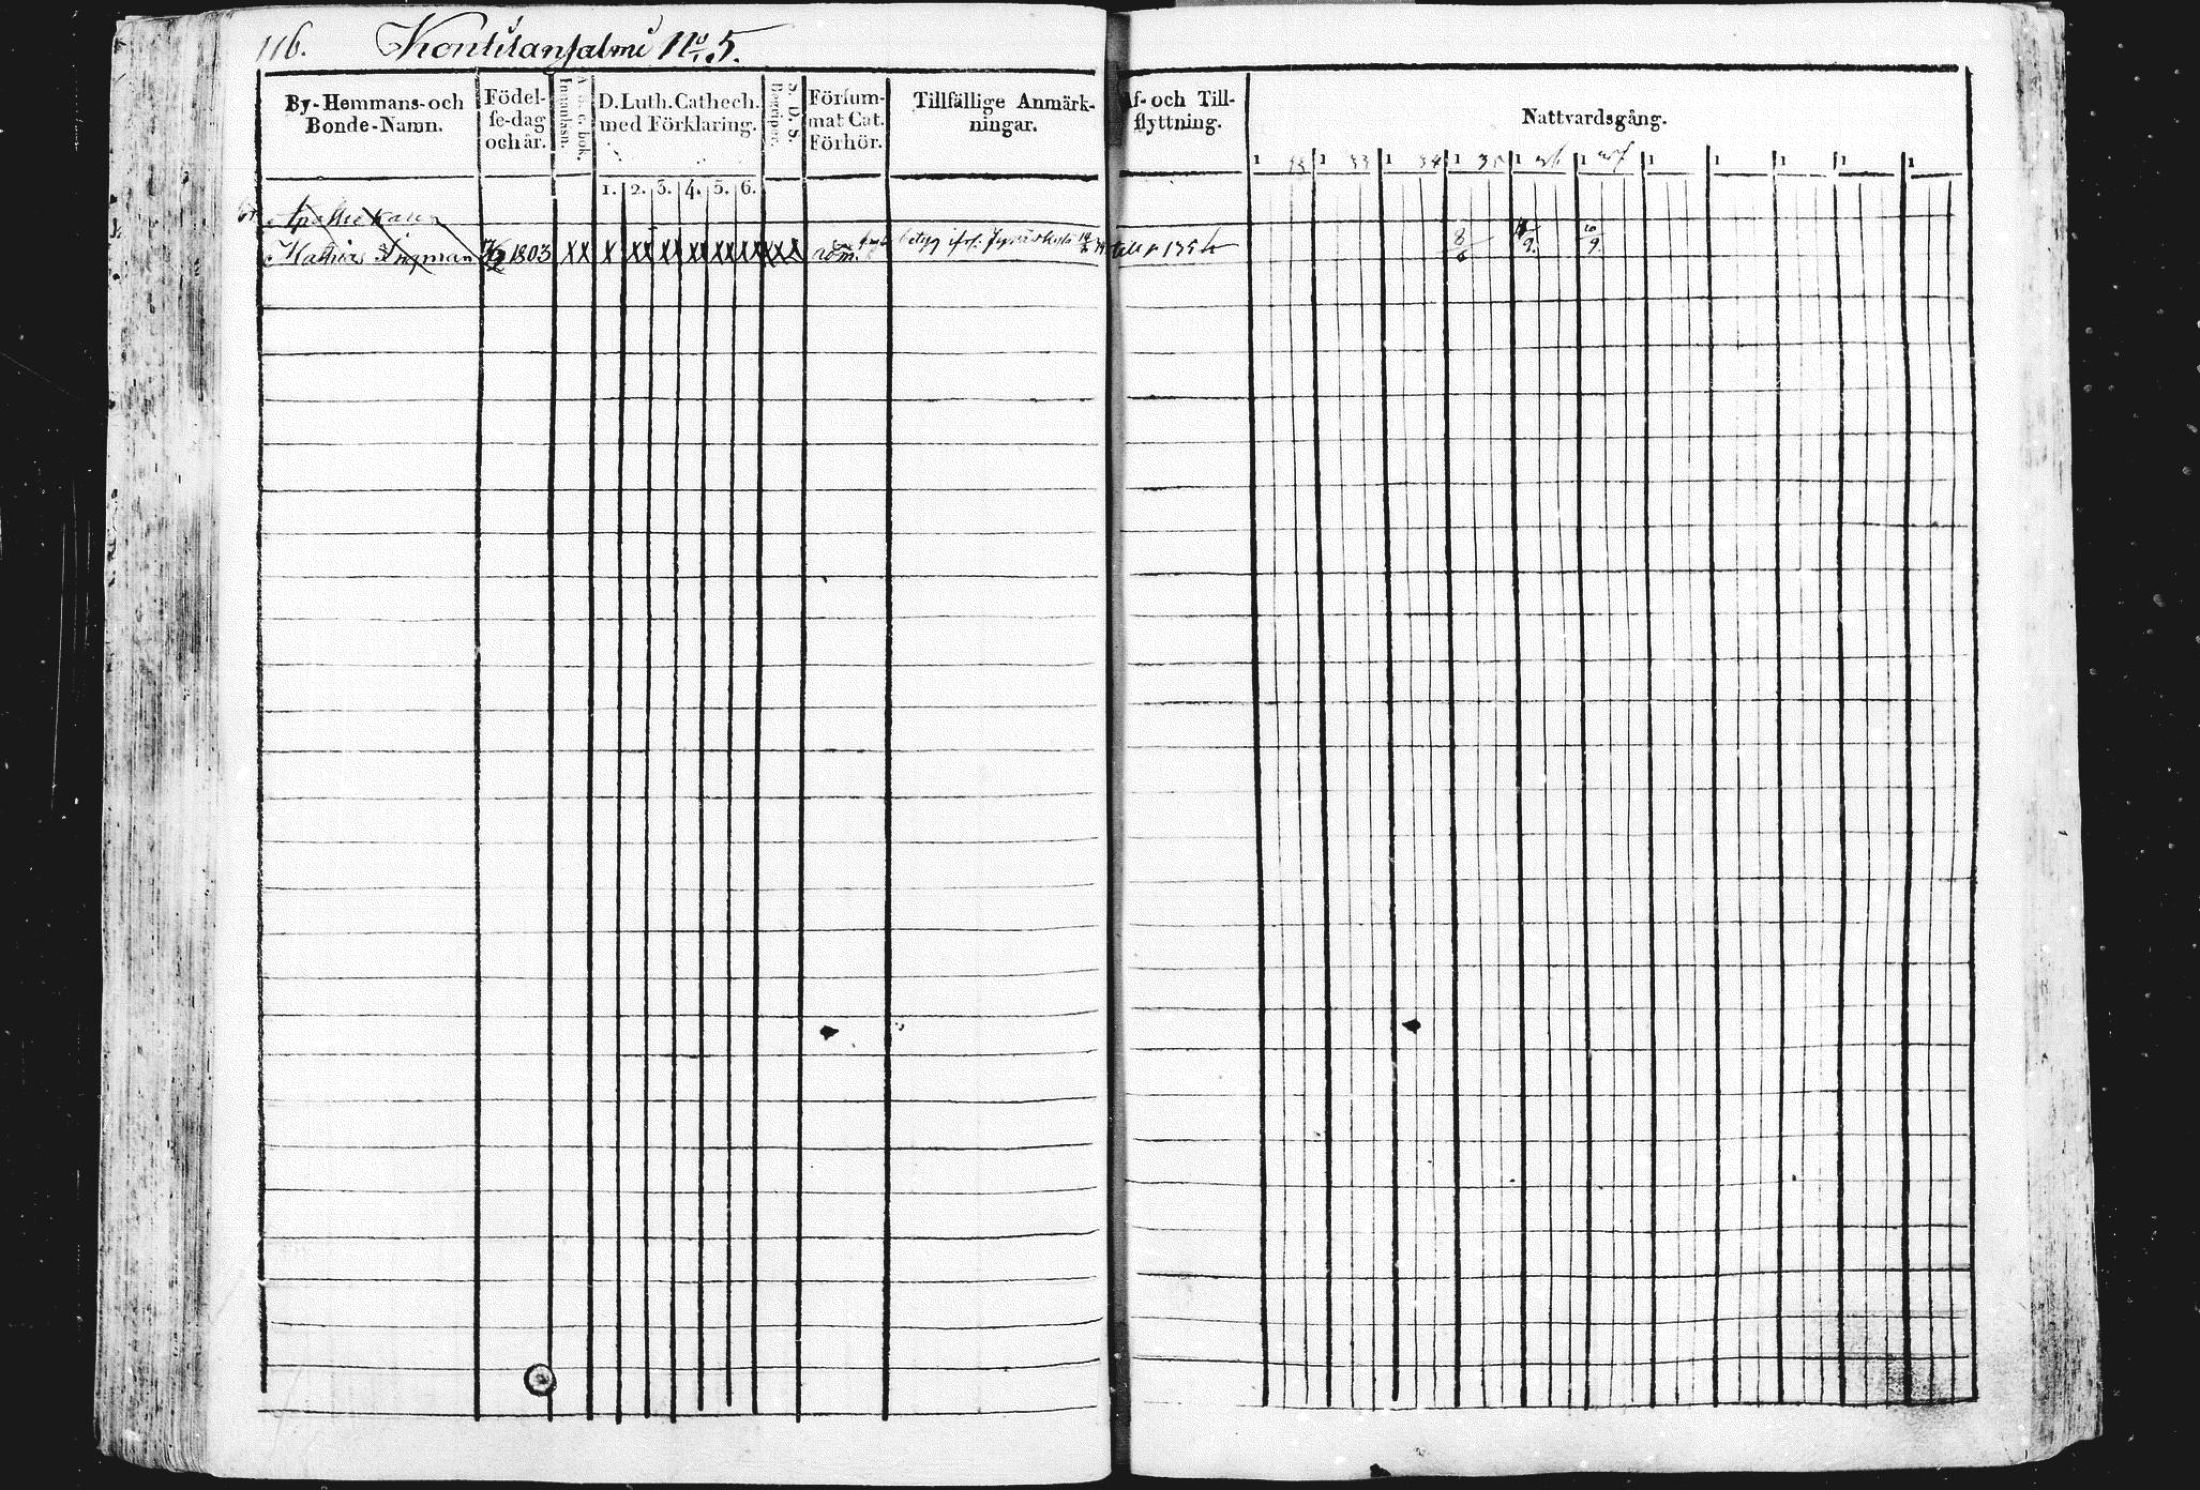 116. Kontilansalmi No 5.
By-Hemmans-och
Bonde-Namn.
Födel-
se-dag
och år.
A. b. c. bok.
Innanläsn.
D. Luth. Cathech.
med Förklaring.
1. 2. 3. 4. 5. 6.
S. D. S.
Begriper.
Försum-
mat Cat.
Förhör.
Tillfällige Anmärk-
ningar.
Af- och Till-
flyttning.
Nattvardsgång.
1 33 1 34 1 35 1 1 1 1 1 1
Mathias Ingman 1803 XX X XX XX XX XX XXX
8/6 9. 10/9.